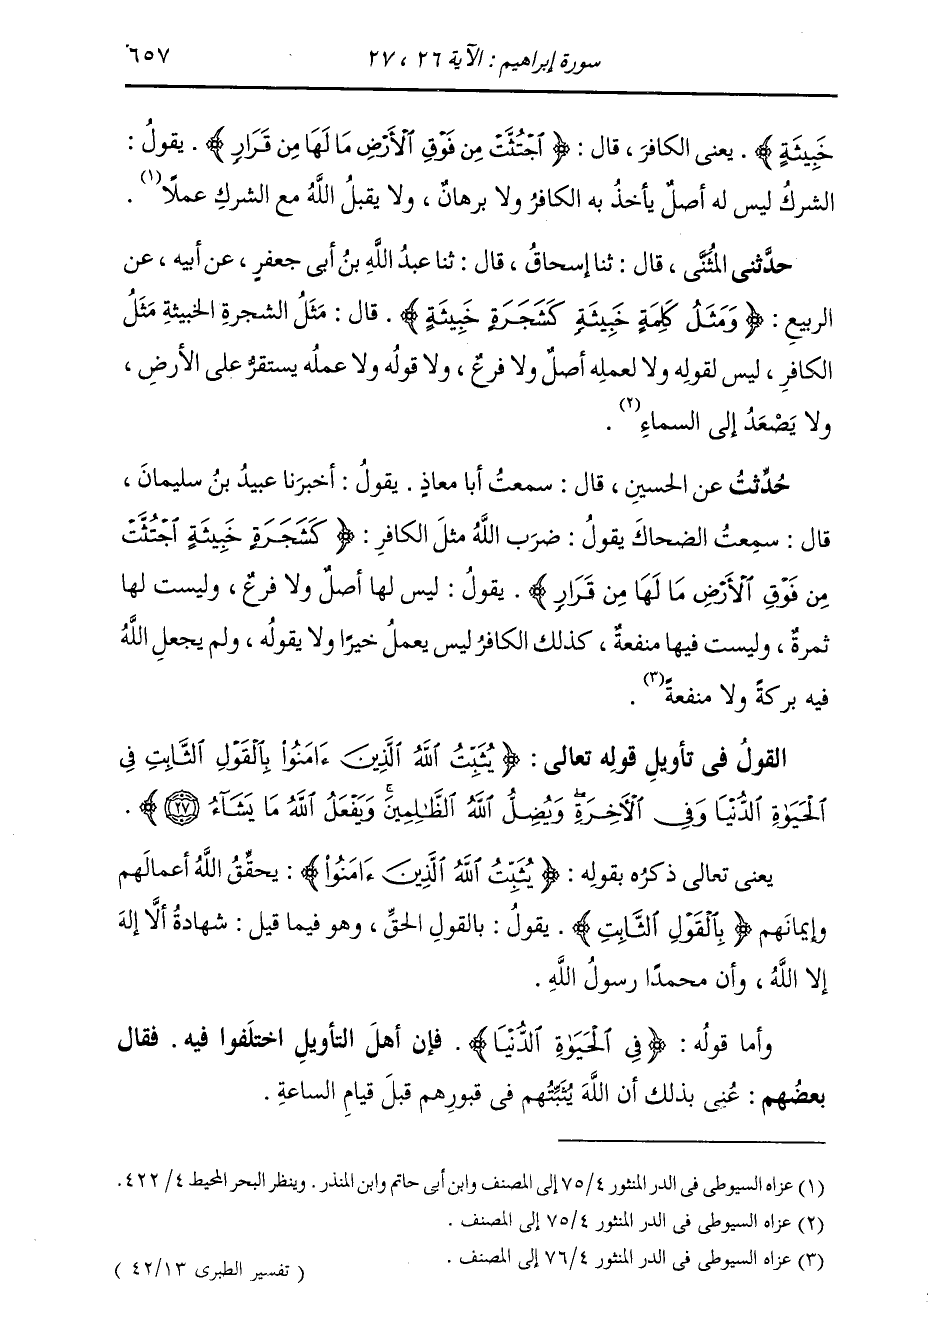 سورة إبراهيم : الآية ٢٦ ، ٢٧ ٦٥٧
خَبِيثَةٍ ﴾ . يعنى الكافرَ ، قال : ﴿ ٱجْتُثَّتْ مِن فَوْقِ ٱلْأَرْضِ مَا لَهَا مِن قَرَارٍ ﴾ . يقولُ :
الشركُ ليس له أصلٌ يأخذُ به الكافرُ ولا برهانٌ ، ولا يقبلُ اللَّهُ مع الشركِ عملًا(١) .
حدَّثنى المُثَنَّى ، قال : ثنا إسحاقُ ، قال : ثنا عبدُ اللَّهِ بنُ أبى جعفرٍ ، عن أبيه ، عن
الربيعِ : ﴿ وَمَثَلُ كَلِمَةٍ خَبِيثَةٍ كَشَجَرَةٍ خَبِيثَةٍ ﴾ . قال : مَثَلُ الشجرةِ الخبيثةِ مَثَلُ
الكافرِ ، ليس لقولِه ولا لعملِه أصلٌ ولا فرعٌ ، ولا قولُه ولا عملُه يستقرُّ على الأرضِ ،
ولا يَصْعَدُ إلى السماءِ(٢) .
حُدِّثتُ عن الحسينِ ، قال : سمعتُ أبا معاذٍ . يقولُ : أخبرَنا عبيدُ بنُ سليمانَ ،
قال : سمِعتُ الضحاكَ يقولُ : ضرَب اللَّهُ مثلَ الكافرِ : ﴿ كَشَجَرَةٍ خَبِيثَةٍ ٱجْتُثَّتْ
مِن فَوْقِ ٱلْأَرْضِ مَا لَهَا مِن قَرَارٍ ﴾ . يقولُ : ليس لها أصلٌ ولا فرعٌ ، وليست لها
ثمرةٌ ، وليست فيها منفعةٌ ، كذلك الكافرُ ليس يعملُ خيرًا ولا يقولُه ، ولم يجعلِ اللَّهُ
فيه بركةً ولا منفعةً(٣) .
القولُ فى تأويلِ قولِه تعالى : ﴿ يُثَبِّتُ ٱللَّهُ ٱلَّذِينَ ءَامَنُواْ بِٱلْقَوْلِ ٱلثَّابِتِ فِى
ٱلْحَيَوٰةِ ٱلدُّنْيَا وَفِى ٱلْأَخِرَةِۖ وَيُضِلُّ ٱللَّهُ ٱلظَّٰلِمِينَۚ وَيَفْعَلُ ٱللَّهُ مَا يَشَآءُ ٢٧ ﴾ .
يعنى تعالى ذكرُه بقولِه : ﴿ يُثَبِّتُ ٱللَّهُ ٱلَّذِينَ ءَامَنُواْ ﴾ : يحقِّقُ اللَّهُ أعمالَهم
وإيمانَهم ﴿ بِٱلْقَوْلِ ٱلثَّابِتِ ﴾ . يقولُ : بالقولِ الحقِّ ، وهو فيما قيل : شهادةُ ألَّا إلهَ
إلا اللَّهُ ، وأن محمدًا رسولُ اللَّهِ .
وأما قولُه : ﴿ فِى ٱلْحَيَوٰةِ ٱلدُّنْيَا ﴾ . فإن أهلَ التأويلِ اختلَفوا فيه . فقال
بعضُهم : عُنِى بذلك أن اللَّهَ يُثَبِّتُهم فى قبورِهم قبلَ قيامِ الساعةِ .
(١) عزاه السيوطى فى الدر المنثور ٧٥/٤ إلى المصنف وابن أبى حاتم وابن المنذر . وينظر البحر المحيط ٤/ ٤٢٢.
(٢) عزاه السيوطى فى الدر المنثور ٧٥/٤ إلى المصنف .
(٣) عزاه السيوطى فى الدر المنثور ٧٦/٤ إلى المصنف .
( تفسير الطبرى ٤٢/١٣ )